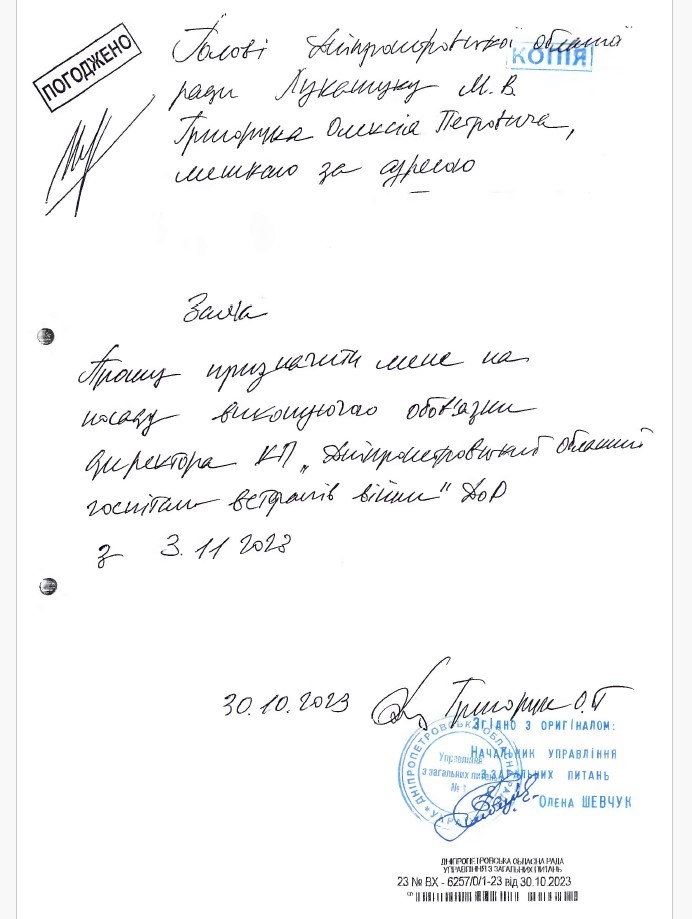 ПОГОДЖЕНО
Голові Дніпропетровської обласної
КОПІЯ
ради Лукашуку М. В.
Григорука Олексія Петровича,
мешкаю за адресою
Заява
Прошу призначити мене на
посаду виконуючого обов'язки
директора КП „Дніпропетровський обласний
госпіталь ветеранів війни" ДОР
з 3.11 2023
30.10.2023 Григорук О.П
Згідно з оригіналом:
Начальник управління
з загальних питань
Олена ШЕВЧУК
ДНІПРОПЕТРОВСЬКА ОБЛАСНА РАДА
Управління
з загальних питань
№ 1
ДНІПРОПЕТРОВСЬКА ОБЛАСНА РАДА
УПРАВЛІННЯ З ЗАГАЛЬНИХ ПИТАНЬ
23 № ВХ - 6257/0/1-23 від 30.10.2023